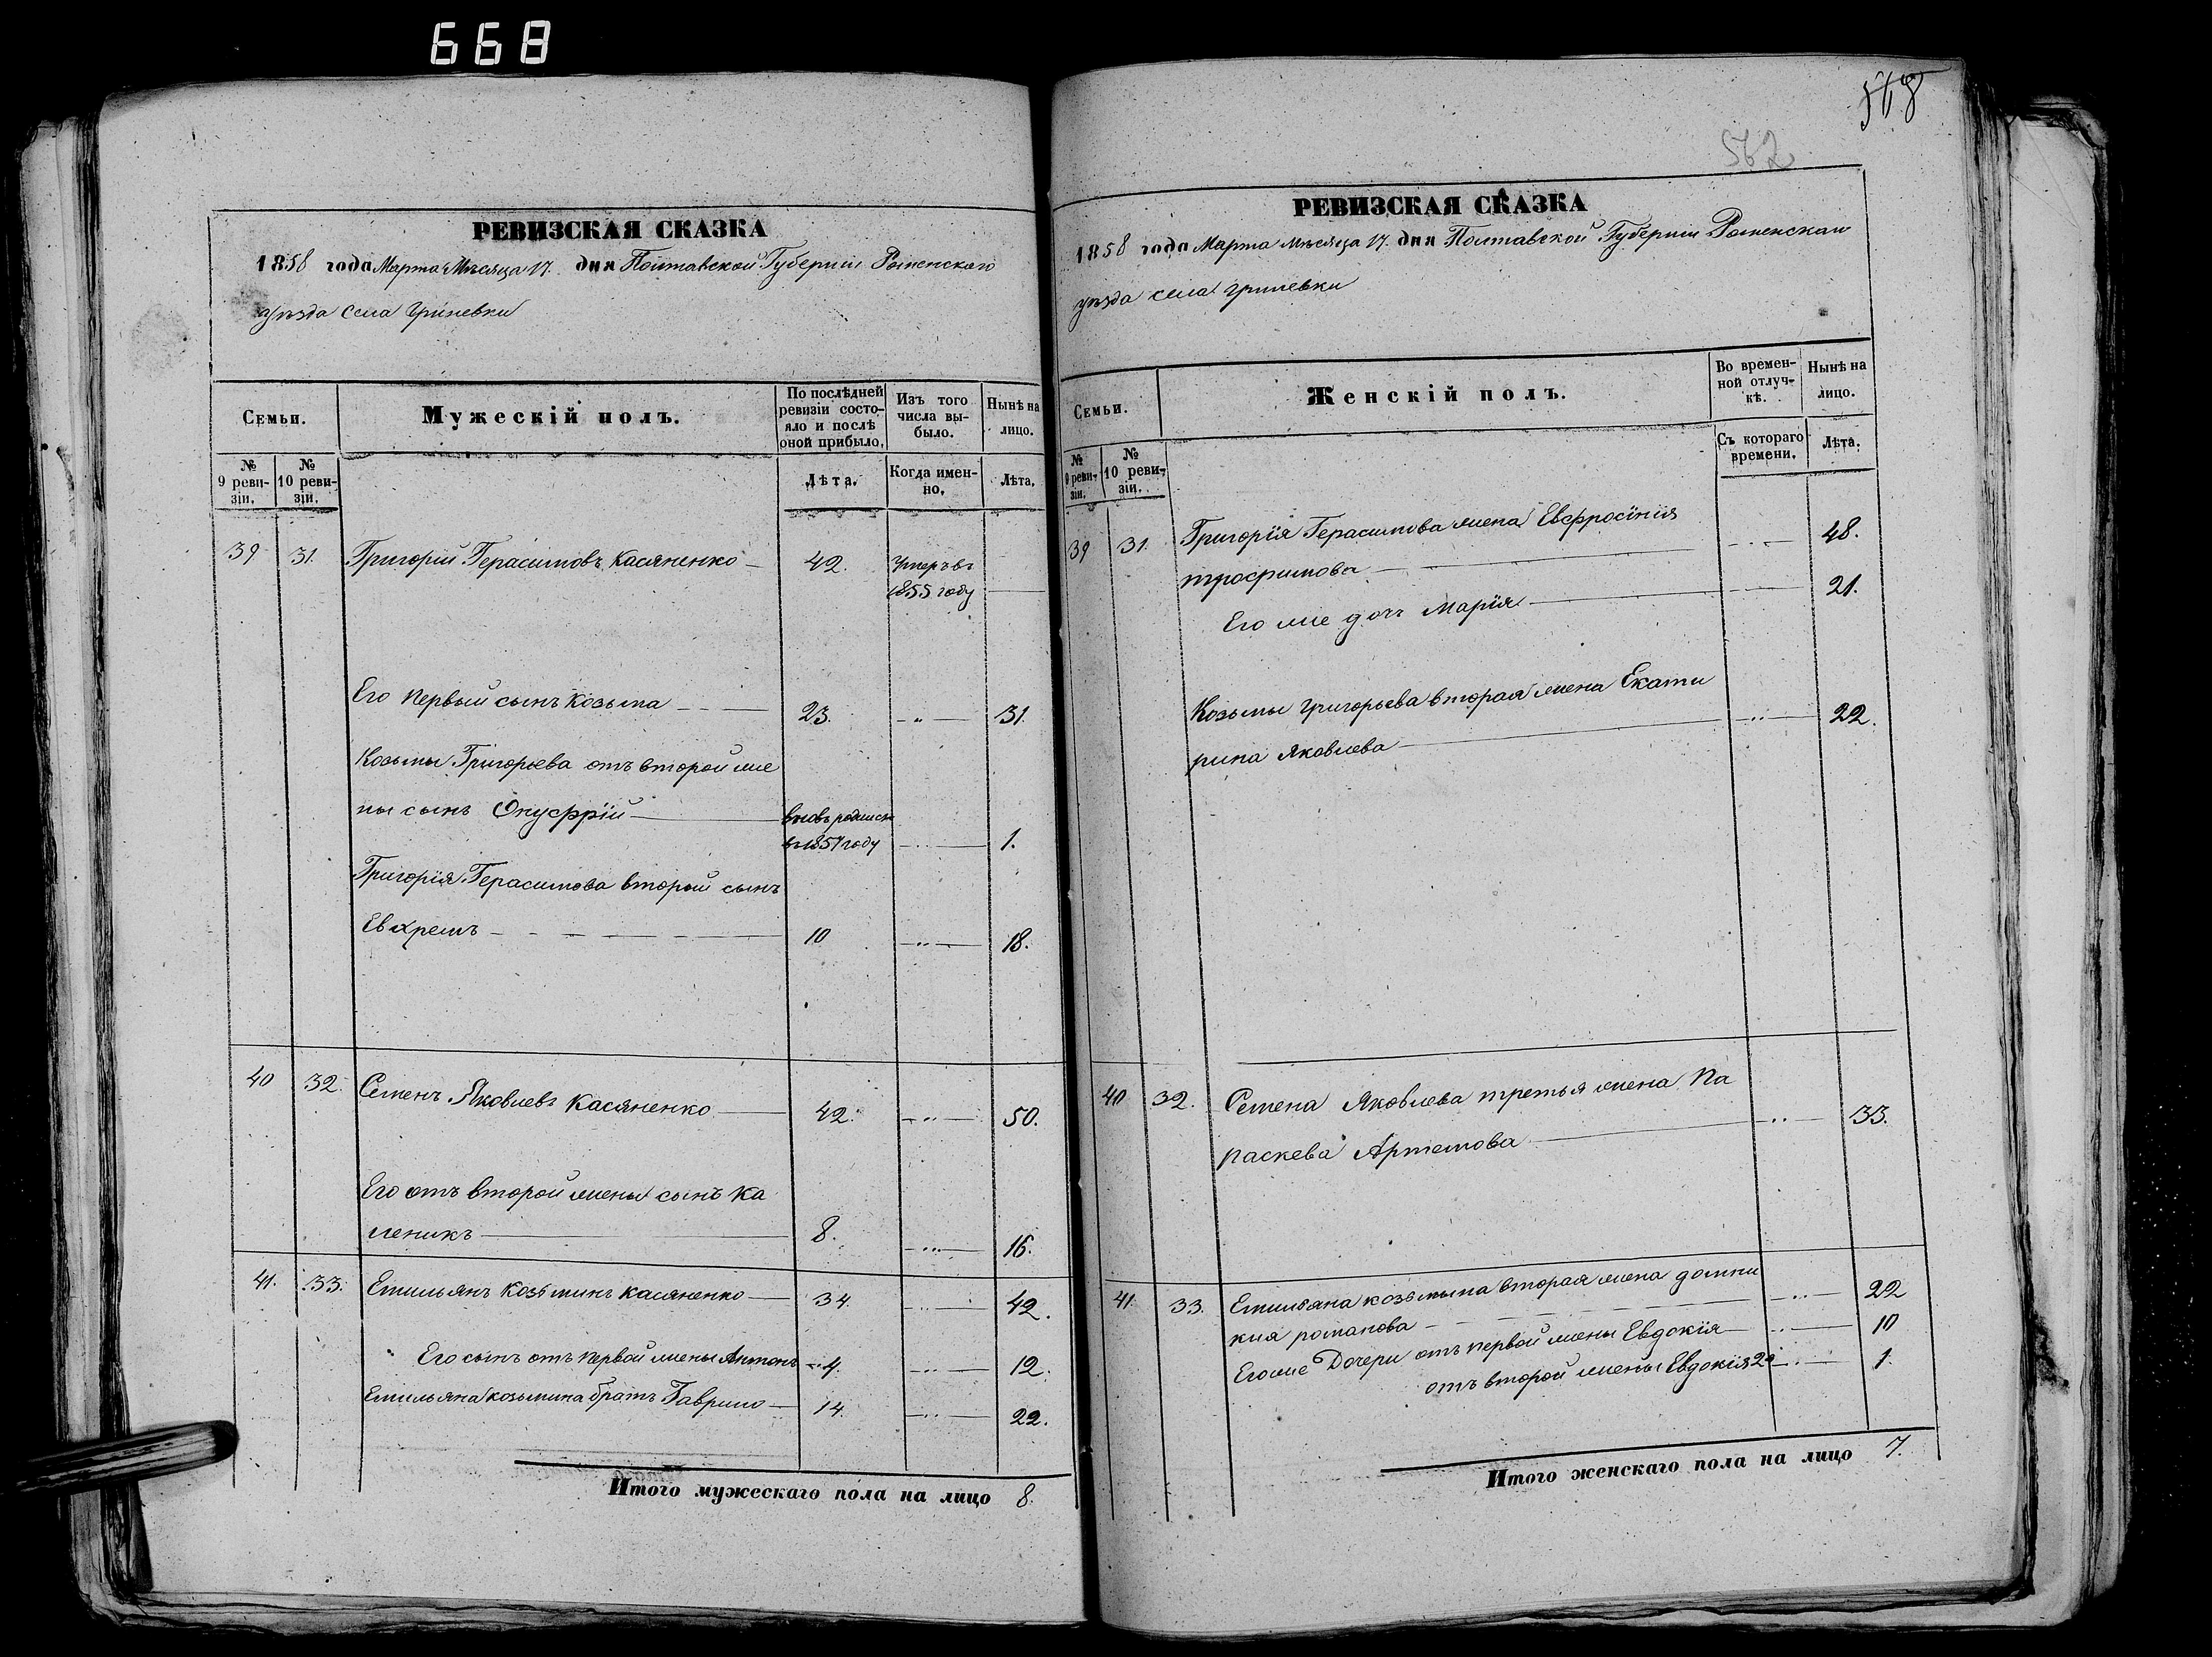 668
РЕВИЗСКАЯ СКАЗКА
1858 года Марта Мѣсяца 17. дня Полтавской Губерніи Роменскаго
уѣзда села Гриневки
Семьи.
Мужескій полъ.
По послѣдней ревизіи состояло и послѣ оной прибыло.
Изъ того числа выбыло.
Нынѣ на лицо.
№ 9 ревизіи.
№ 10 ревизіи.
Лѣта.
Когда именно.
Лѣта.
39 31. Григорій Герасимовъ Касяненко — 42. Умеръ въ
1855 году —
Его первый сынъ Козьма — 23. — " — 31.
Козьмы Григорьева отъ второй же
ны сынъ Онуфрій — вновь родился
въ 1857 году — " — 1.
Григорія Герасимова второй сынъ
Евхремъ — 10 — " — 18.
40 32. Семенъ Яковлевъ Касяненко — 42. — " — 50.
Его отъ второй жены сынъ Ка
леникъ — 8. — " — 16.
41. 33. Емильянъ Козьминъ Касяненко — 34. — " — 42.
Его сынъ отъ первой жены Антонъ — 4. — " — 12.
Емильяна Козьмина братъ Гаврило — 14. — " — 22.
Итого мужескаго пола на лицо 8.
562
РЕВИЗСКАЯ СКАЗКА
1858 года Марта Мѣсяца 17. дня Полтавской Губерніи Роменскаго
уѣзда села Гриневки
Семьи.
Женскій полъ.
Во временной отлучкѣ.
Нынѣ на лицо.
№ 9 ревизіи.
№ 10 ревизіи.
Съ котораго времени.
Лѣта.
39 31. Григорія Герасимова жена Евфросінія
трофимова — 48.
Его же дочь Марія — 21.
Козьмы Григорьева вторая жена Екати
рина Яковлева — " — 22.
40 32. Семена Яковлева третья жена Па
раскева Артемова — " — 33.
41. 33. Емильяна козьмына вторая жена домни
кия романова — " — 22
Его же Дочери отъ первой жены Евдокія — " — 10
отъ второй жены Евдокія 2я — " — 1.
Итого женскаго пола на лицо 7.